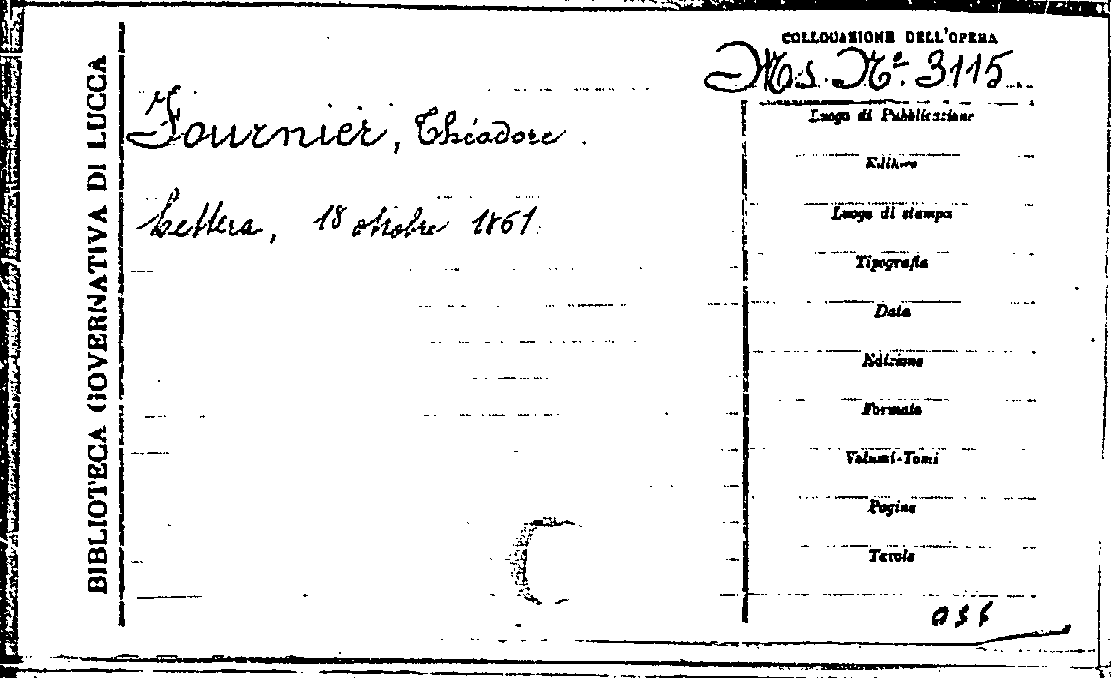 BIBLIOTECA GOVERNATIVA DI LUCCA
COLLOCAZIONE DELL'OPERA
Ms. Nº. 3115
Fournier, Théodore.
Lettera, 18 ottobre 1861.
Luogo di Pubblicazione
Editore
Luogo di stampa
Tipografia
Data
Edizione
Formato
Volumi-Tomi
Pagine
Tavole